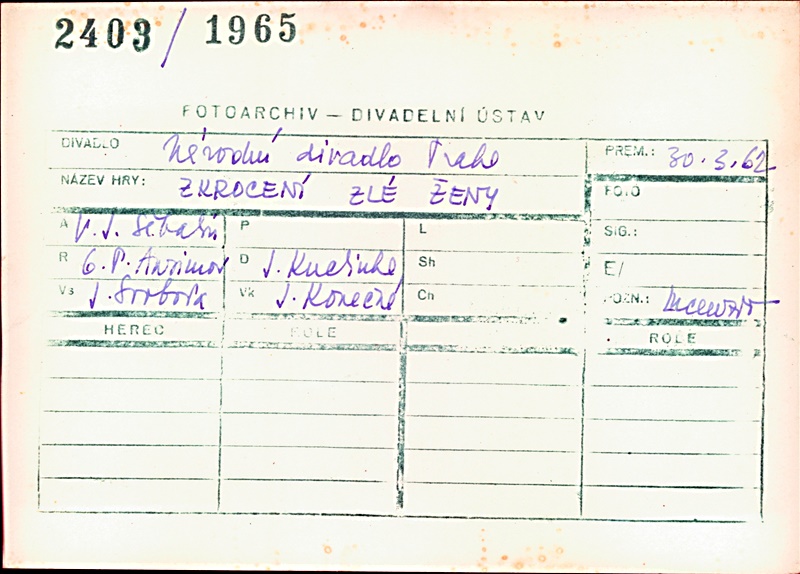 2403/1965
FOTOARCHIV – DIVADELNÍ ÚSTAV
DIVADLO Národní divadlo Praha PREM.: 30.3.62
NÁZEV HRY: ZKROCENÍ ZLÉ ŽENY FOTO
A V. J. Šebalin P L SIG.:
R G. P. Ansimov D J. Kuchinka Sh E/
Vs J. Svoboda Vk J. Konečná Ch POZN.:
HEREC ROLE ROLE